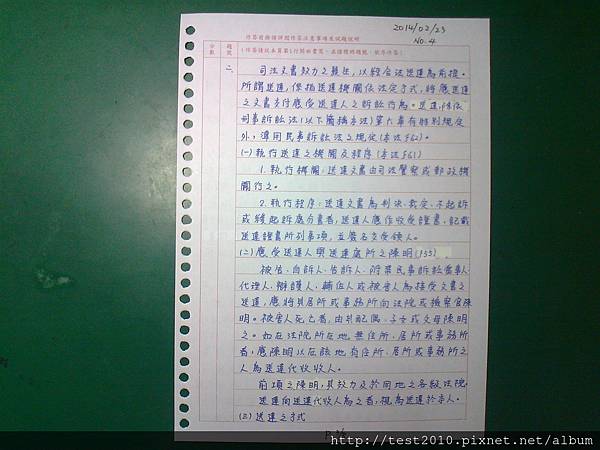 2014/02/23
No. 4
作答前務請詳閱作答注意事項及試題說明
分數
題號
(作答請從本頁第1行開始書寫，並請標明題號，依序作答)
二、
司法文書效力之發生，以經合法送達為前提。
所謂送達，係指送達機關依法定方式，將應送達
之文書交付應受送達人之訴訟行為。送達，除依
刑事訴訟法(以下簡稱本法)第六章有特別規定
外，準用民事訴訟法之規定(本法§62)。
(一)執行送達之機關及程序(本法§61)
1. 執行機關：送達文書由司法警察或郵政機
關行之。
2. 執行程序：送達文書為判決、裁定、不起訴
或緩起訴處分書者，送達人應作收受證書、記載
送達證書所列事項，並簽名交受領人。
(二)應受送達人與送達處所之陳明(§55)
被告、自訴人、告訴人、附帶民事訴訟當事人、
代理人、辯護人、輔佐人或被害人為接受文書之
送達，應將其居所或事務所向法院或檢察官陳
明。被害人死亡者，由其配偶、子女或父母陳明
之。如在法院所在地無住所、居所或事務所
者，應陳明以在該地有住所、居所或事務所之
人為送達代收人。
前項之陳明，其效力及於同地之各級法院。
送達向送達代收人為之者，視為送達於本人。
(三)送達之方式
http://test2010.pixnet.net/album